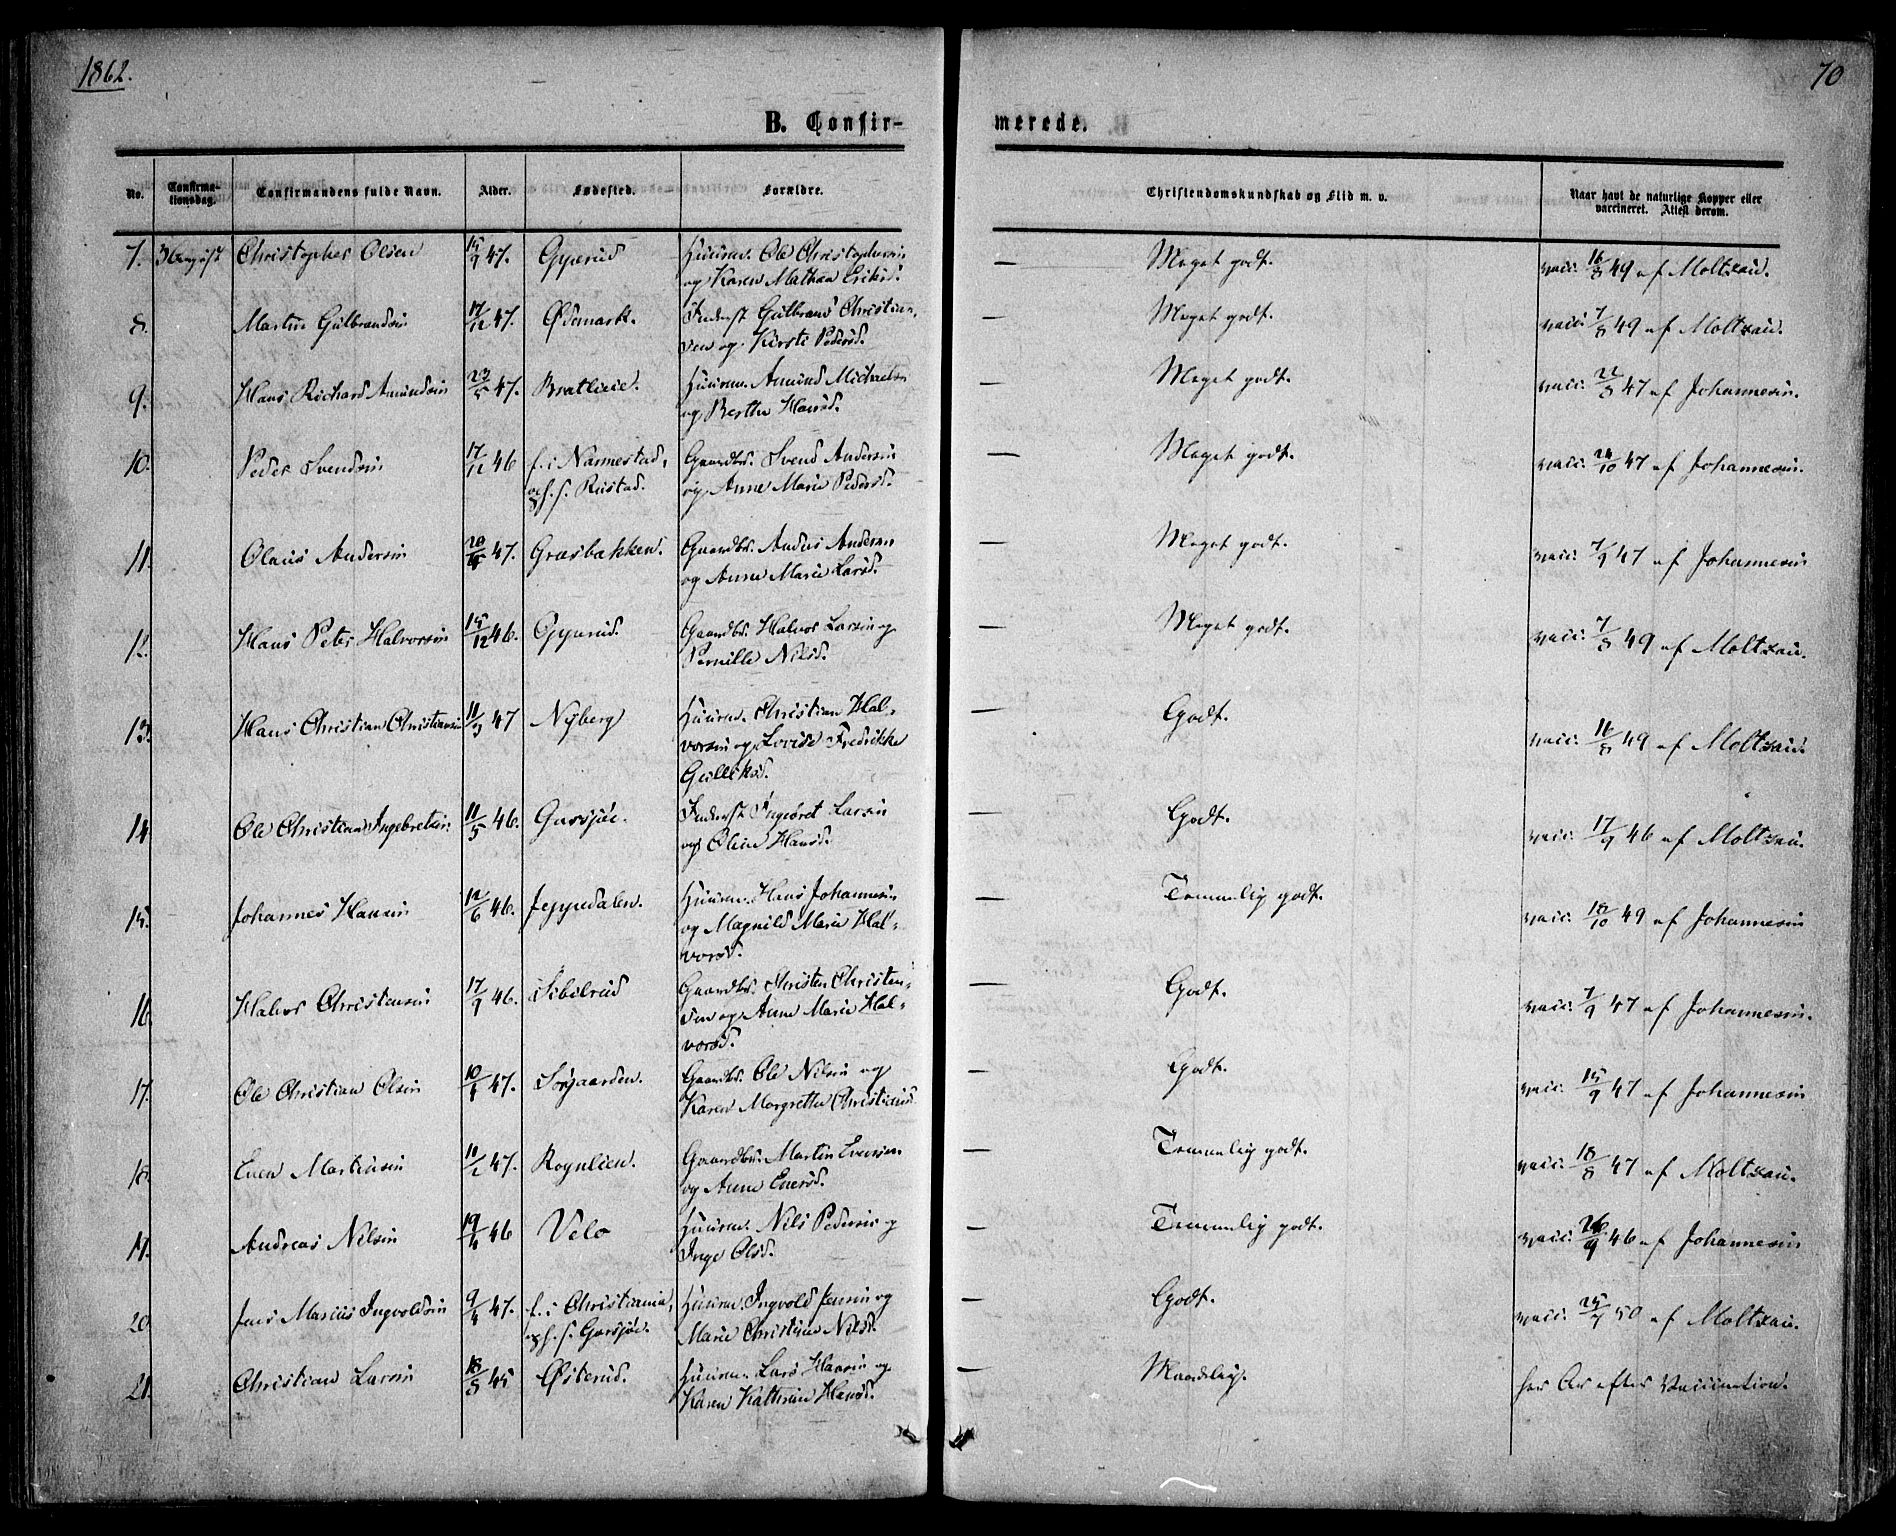 1862.
70
B. Confir-
merede.
No.
Confirma-
tionsdag.
Confirmandens fulde Navn.
Alder.
Fødested.
Forældre.
Christendomskundskab og Flid m. v.
Naar havt de naturlige Kopper eller
vaccineret. Attest derom.
7. Christopher Olsen 15/9 47. Opperud Huusm. Ole Christophersen — Meget godt. vacc. 16/8 49 af Moltzau.
og Karen Mathea Eriksd.
8. Martin Gulbrandsen 17/12 47. Ødemark. Inderst Gulbrand Christian- — Meget godt. vacc. 7/8 49 af Moltzau.
sen og Kirsti Pedersd.
9. Hans Richard Amundsen 23/5 47. Bratlieie. Huusm. Amund Michaelsen — Meget godt. vacc. 22/8 47 af Johannesen.
og Berthe Hansd.
10. Peder Svendsen 17/12 46 f. i Nannestad, Gaardbr. Svend Andersen — Meget godt. vacc. 24/10 47 af Johannesen.
oph. p. Rustad. og Anne Marie Pedersd.
11. Olaus Andersen 47. Græsbakken. Gaardbr. Anders Andersen — Meget godt. vacc. 7/9 47 af Johannesen
og Anne Marie Larsd.
12. Hans Peter Halvorsen 15/12 46. Opperud. Gaardbr. Halvor Larsen og — Meget godt. vacc. 7/8 49 af Moltzau.
Pernille Nilsd.
13. Hans Christian Christiansen 11/3 47 Nyberg Huusm. Christian Hal- — Godt. vacc. 16/8 49 af Moltzau.
vorsen og Lovise Fredrikke
Gulliksd.
14. Ole Christian Ingebretsen. 11/5 46. Garsjøe. Inderst Ingebret Larsen — Godt. vacc. 17/9 46 af Moltzau.
og Oline Hansd.
15. Johannes Hansen 12/6 46. Jeppedalen. Huusm. Hans Johannesen — Temmelig godt. vacc. 18/10 49 af Johannesen
og Magnild Marie Hal-
vorsd.
16. Halvor Christensen 17/9 46. Sibilrud Gaardbr. Christen Christen- — Godt. vacc. 7/9 47 af Johannesen.
sen og Anne Marie Hal-
vorsd.
17. Ole Christian Olsen 47. Sørgaarden. Gaardbr. Ole Nilsen og — Godt. vacc. 15/9 47 af Johannesen
Karen Margrethe Christiansd.
18. Even Martinsen 47. Rognlien. Gaardbr. Martin Evensen — Temmelig godt. vacc. 18/8 47 af Moltzau.
og Anne Enersd.
19. Andreas Nilsen 46 Velo Huusm. Nils Pedersen og — Temmelig godt. vacc. 26/9 46 af Johannesen
Inge Olsd.
20 Jens Marius Ingvoldsen 9/4 47. f. i Christiania, Huusm. Ingvold Jensen og — Godt. vacc. 25/7 50 af Moltzau.
oph. p. Garsjøe. Marie Christine Nilsd.
21. Christian Larsen 18/5 45 Østerud. Huusm. Lars Hansen og — Maadelig. har Ar efter Vaccination.
Karen Kathrine Hansd.